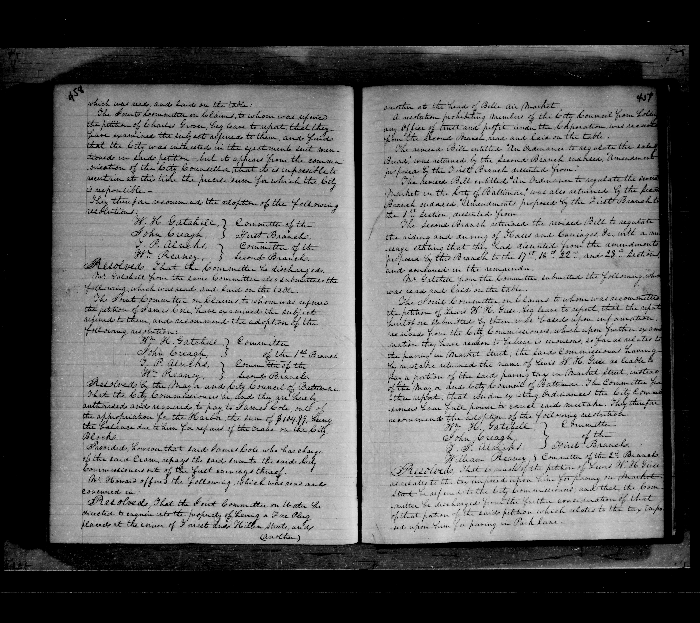 458
which was read, and laid on the table.
The Joint Committee on Claims, to whom was referred
the petition of Charles Gwinn, beg leave to report that they
have examined the subject referred to them, and find
that the City was interested in the ejectment suit men-
tioned in said petition, but it appears from the commu-
nication of the City Counsellor, that it is impossible
to ascertain at this time the precise sum for which the City
is responsible.
They therefore recommend the adoption of the following
resolution:
W. H. Gatchell, } Committee of the
John Creagh, } First Branch.
Committee of the
Wm. Reaney, } Second Branch.
Resolved, That the Committee be discharged.
Mr. Gatchell from the same Committee also submitted the
following, which was read and laid on the table.
The Joint Committee on Claims to whom was referred
the petition of James Cole, have examined the subject
referred to them, and recommend the adoption of the
following resolution:
Wm H. Gatchell } Committee
John Creagh, } of the 1st Branch
Committee of the
Wm. Reaney, } Second Branch.
Resolved by the Mayor and City Council of Baltimore,
That the City Commissioners be, and they are hereby
authorised and required to pay to James Cole out of
the appropriation for the Harbor, the sum of being
the balance due to him for repairs of the Crane on the City
Block.
Provided, however, that said James Cole who has charge
of the said Crane, repays the said sum to the said City
Commissioners out of the first earnings thereof.
Mr. Howard offered the following, which was read and
concurred in.
Resolved, That the Joint Committee on Water be
directed to enquire into the propriety of having a Fire Plug
placed at the corner of Forrest and Hillen streets, and
(another)
459
another at the head of Bel Air Market.
A resolution prohibiting members of the City Council from holding
any Office of trust and profit under the Corporation was received
from the Second Branch, read and laid on the table.
The revised Bill entitled "An Ordinance to regulate the
was returned by the Second Branch endorsed, "Amendment
proposed by the First Branch dissented from."
The revised Bill entitled "An Ordinance to regulate the several
Markets in the City of Baltimore," was also returned by the Second
Branch endorsed "Amendments proposed by the First Branch to
the 1st Section dissented from.
The Second Branch returned the revised Bill to regulate
the riding and driving of Horses and Carriages &c. with a mes-
sage stating that they had dissented from the amendments
proposed by this Branch to the 17th 18th 22nd and 23rd Sections
and concurred in the remainder.
Mr. Gatchell from the Committee submitted the following, which
was read and laid on the table.
The Joint Committee on Claims to whom was recommitted
the petition of Lewis W. H. beg leave to report, that the report
heretofore submitted by them was based upon information,
received from the City Commissioners, which upon further exami-
nation they have reason to believe is erroneous, so far as relates to
the paving in Market Street, the said Commissioners having
by mistake returned the name of Lewis W. H. as liable to
for a portion of the said paving tax in Market Street, instead
of the Mayor and City Council of Baltimore. The Committee fur-
ther report, that under existing Ordinances the City Commis-
sioners have full power to correct such mistake. They therefore
recommend the adoption of the following resolution.
Wm H. Gatchell } Committee
John Creagh, } of the
First Branch.
William Reaney, } Committee of the 2nd Branch.
Resolved, That so much of the petition of Lewis W. H.
as relates to the tax imposed upon him for paving in Market
Street be referred to the City Commissioners, and that the Com-
mittee be discharged from the further consideration of that
of that portion of the said petition which relates to the tax impo-
sed upon him for paving in Park Lane.